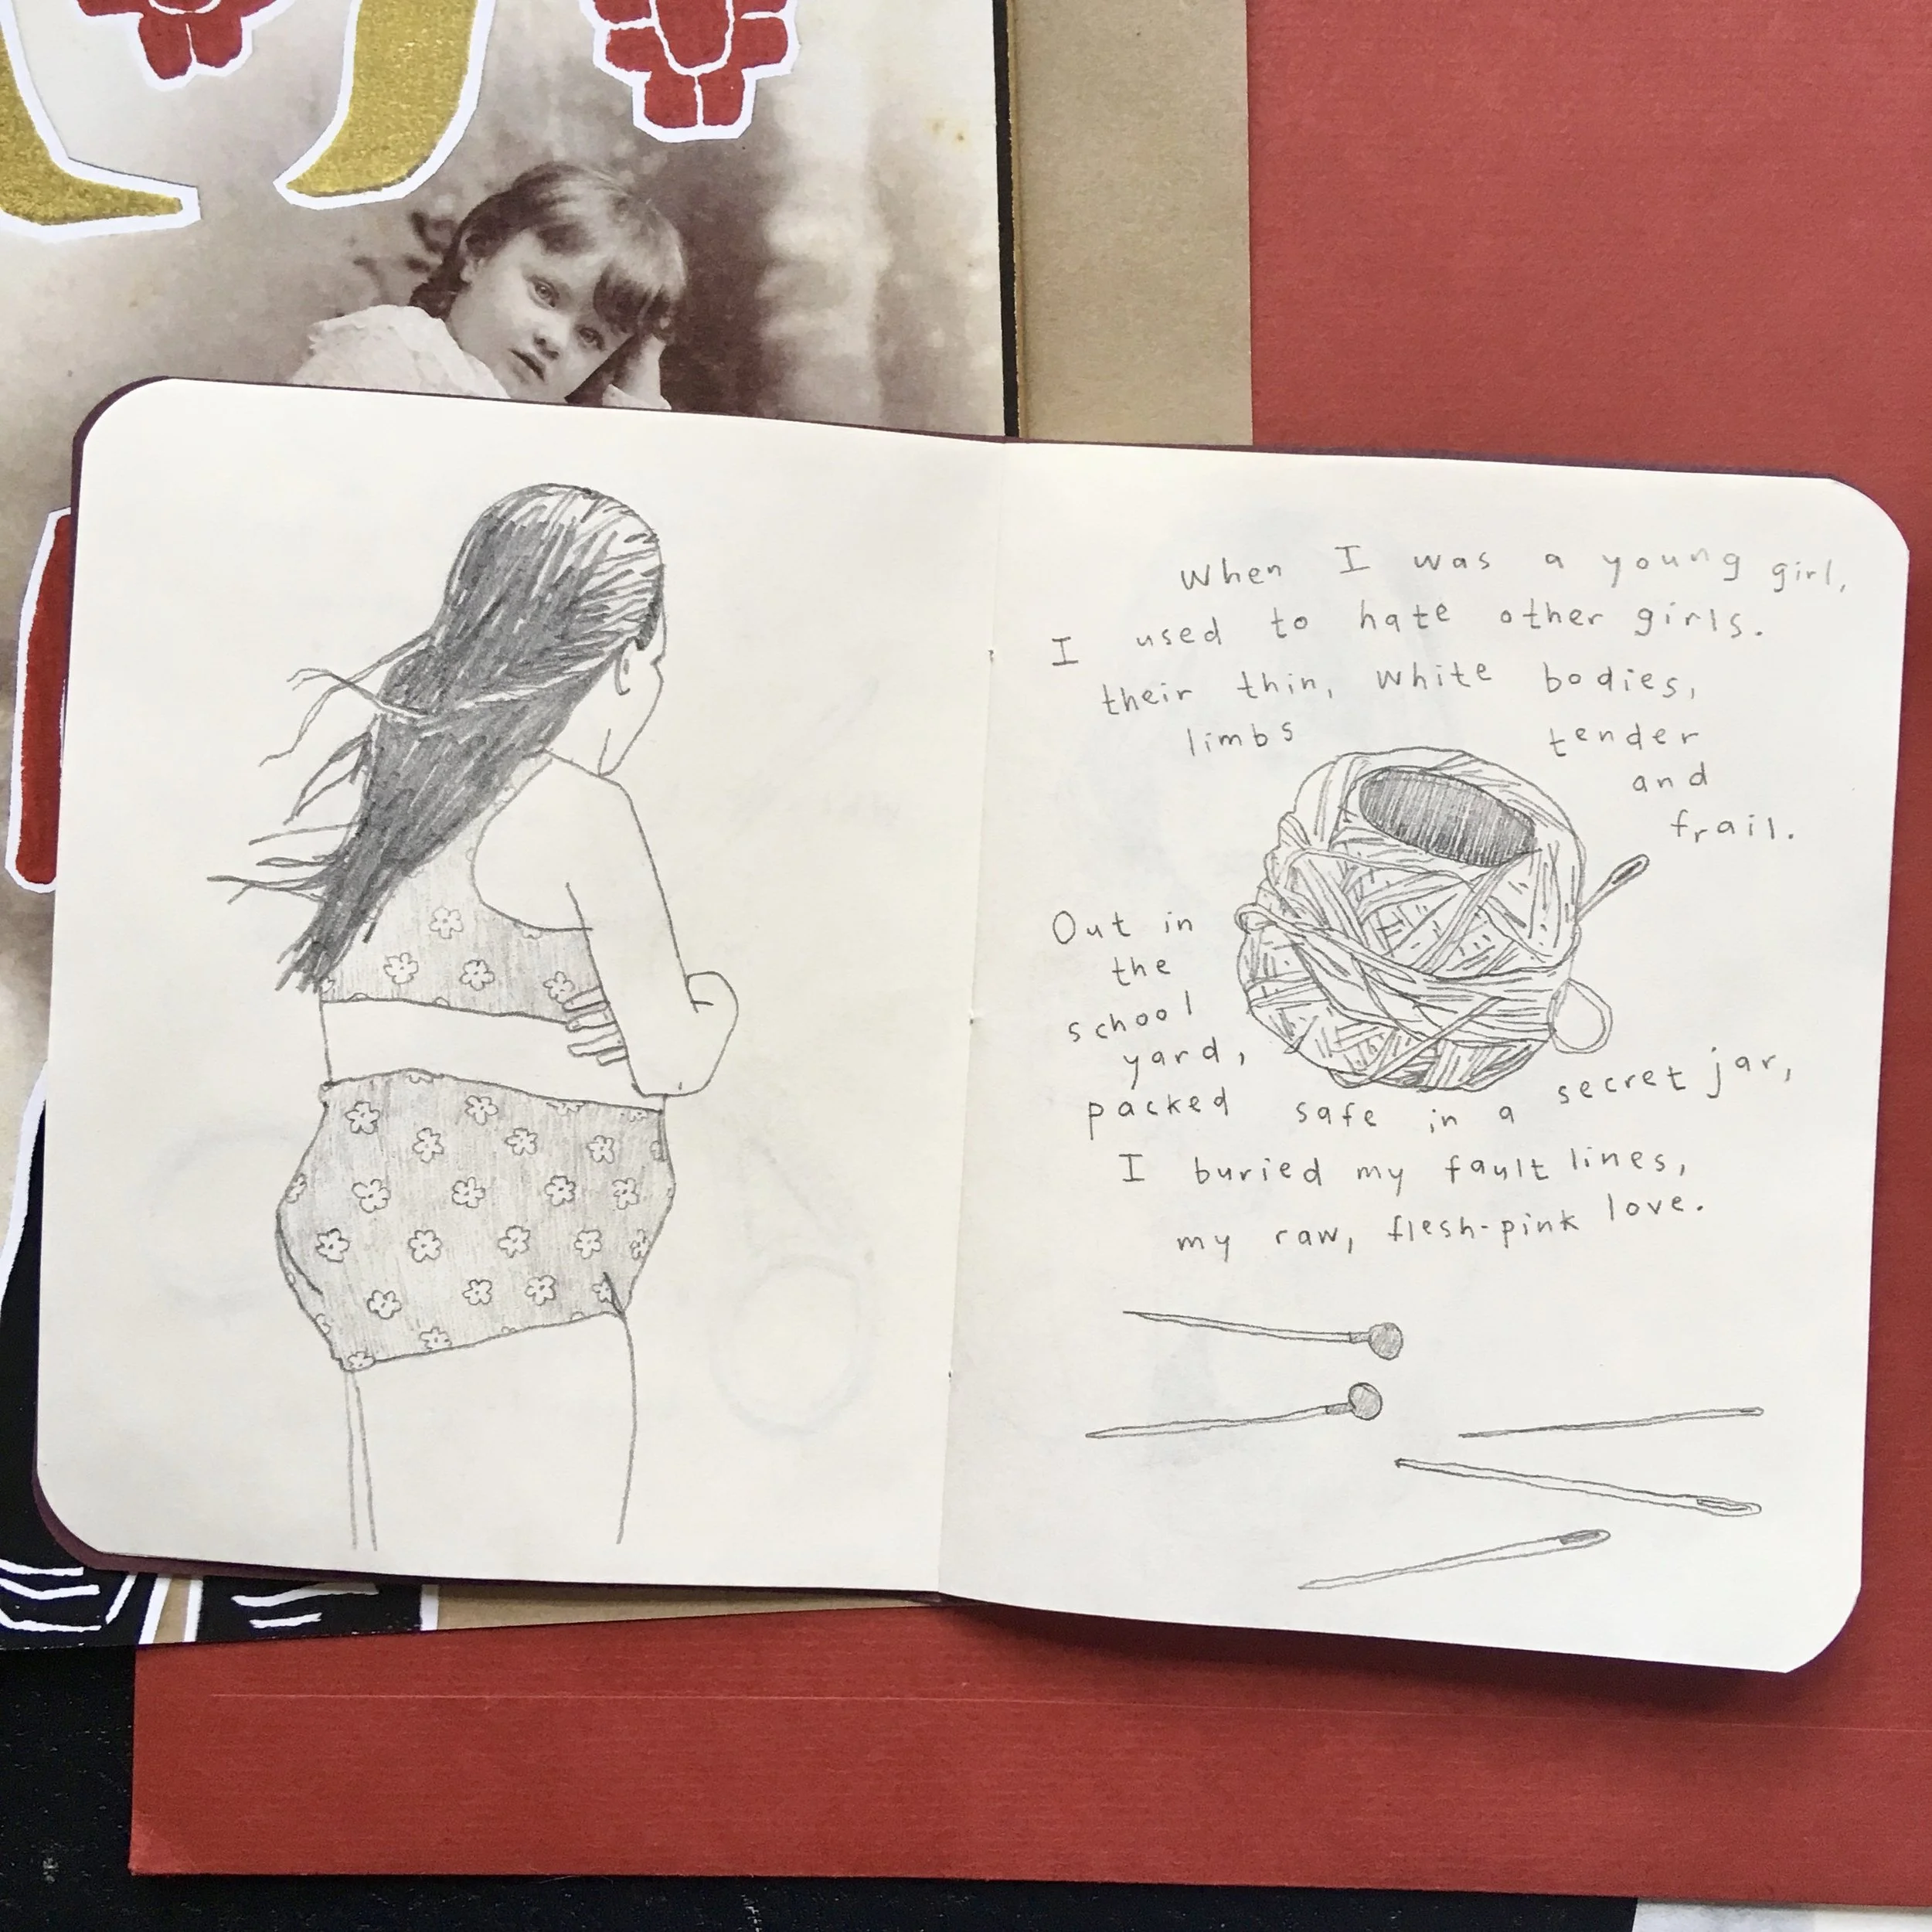 When I was a young girl,
I used to hate other girls.
their thin, white bodies,
limbs tender
and
frail.
Out in
the
school
yard,
packed safe in a secret jar,
I buried my fault lines,
my raw, flesh-pink love.